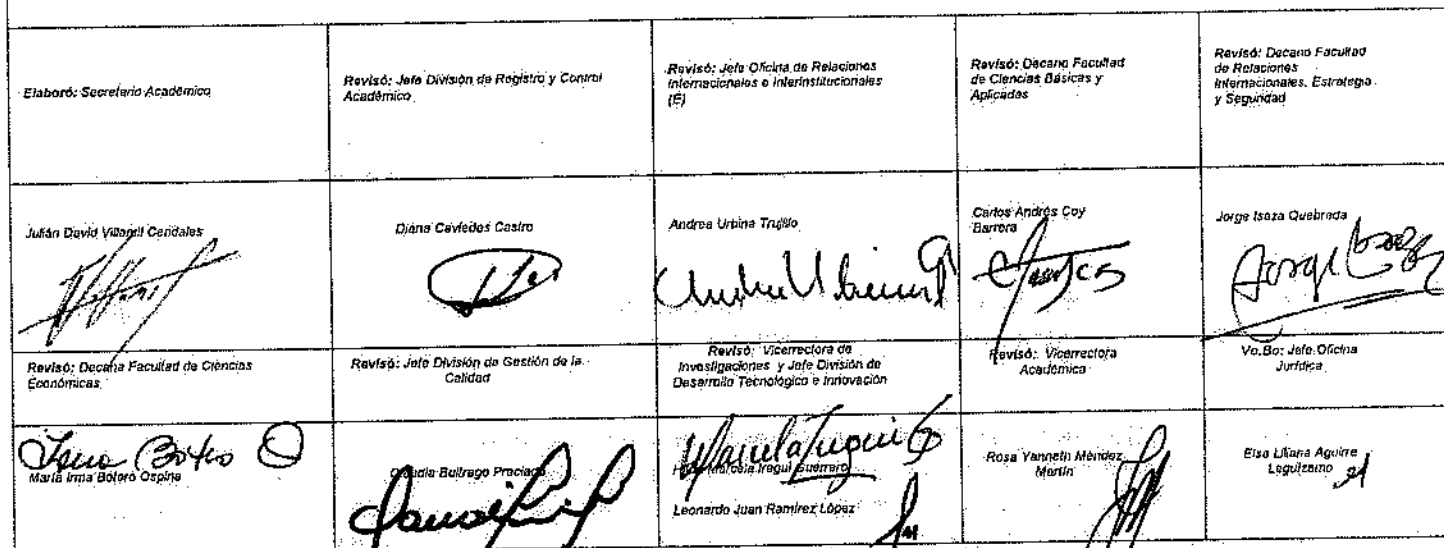 Elaboró: Secretario Académico
Revisó: Jefe División de Registro y Control
Académico
Revisó: Jefe Oficina de Relaciones
Internacionales e Interinstitucionales
(E)
Revisó: Decano Facultad
de Ciencias Básicas y
Aplicadas
Revisó: Decano Facultad
de Relaciones
Internacionales, Estrategia
y Seguridad
Julián David Villamil Cendales
Diana Caviedes Castro
Andrea Urbina Trujillo
Carlos Andrés Coy
Barrera
Jorge Isaza Quebrada
Revisó: Decana Facultad de Ciencias
Económicas
Revisó: Jefe División de Gestión de la
Calidad
Revisó: Vicerrectora de
Investigaciones y Jefe División de
Desarrollo Tecnológico e Innovación
Revisó: Vicerrectora
Académica
Vo.Bo: Jefe Oficina
Jurídica
María Irma Botero Ospina
Claudia Buitrago Preciado
Marcela Iregui Guerrero
Leonardo Juan Ramírez López
Rosa Yanneth Méndez
Martín
Elsa Liliana Aguirre
Leguizamo